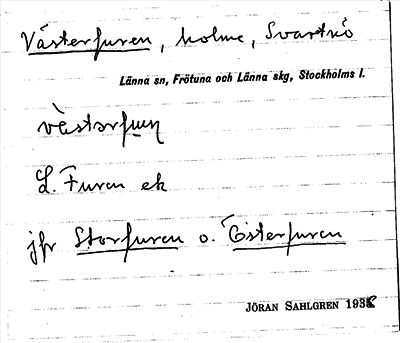 Västerfuren, holme, Svartnö
Länna sn, Frötuna och Länna skg, Stockholms l.
L. Furen ek
jfr Storfuren o. Österfuren
JÖRAN SAHLGREN 1935